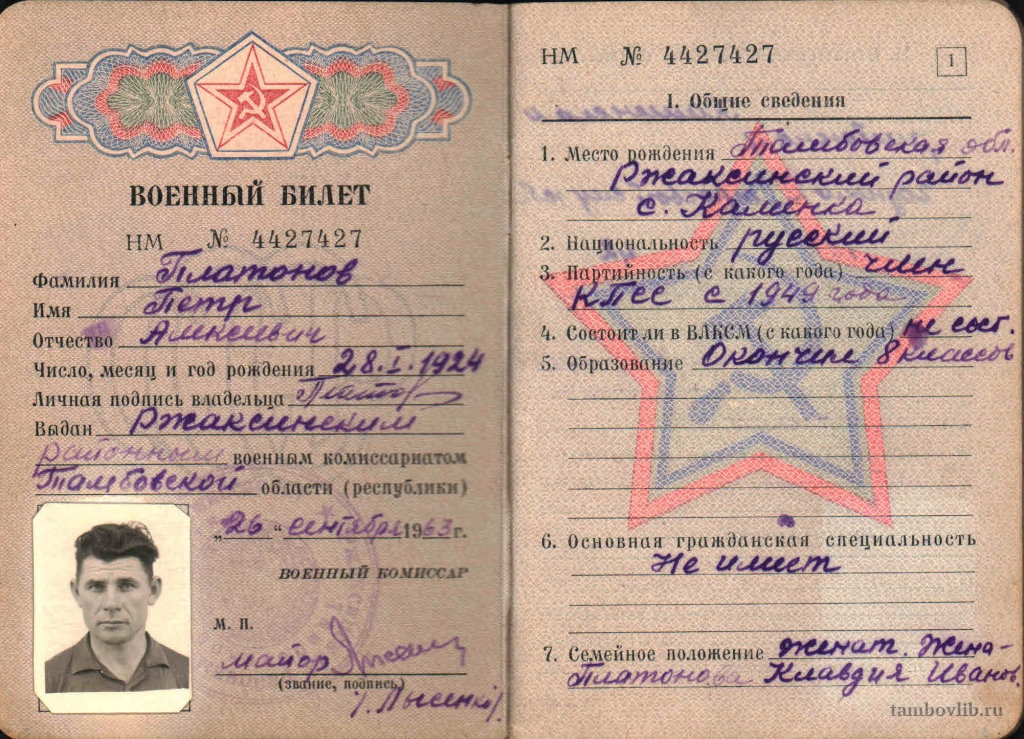 ВОЕННЫЙ БИЛЕТ
НМ № 4427427
Фамилия Платонов
Имя Петр
Отчество Алексеевич
Число, месяц и год рождения 28.I.1924
Личная подпись владельца
Выдан Ржаксинским
районным военным комиссариатом
Тамбовской области (республики)
„26“ сентября 1963 г.
ВОЕННЫЙ КОМИССАР
М. П.
майор
(звание, подпись)
/Лысенко/
НМ № 4427427
1
I. Общие сведения
1. Место рождения Тамбовская обл.
Ржаксинский район
с. Калинка
2. Национальность русский
3. Партийность (с какого года) член
КПСС с 1949 года
4. Состоит ли в ВЛКСМ (с какого года) не сост.
5. Образование Окончил 8 классов
6. Основная гражданская специальность
Не имеет
7. Семейное положение женат. Жена-
Платонова Клавдия Иванов.
tambovlib.ru